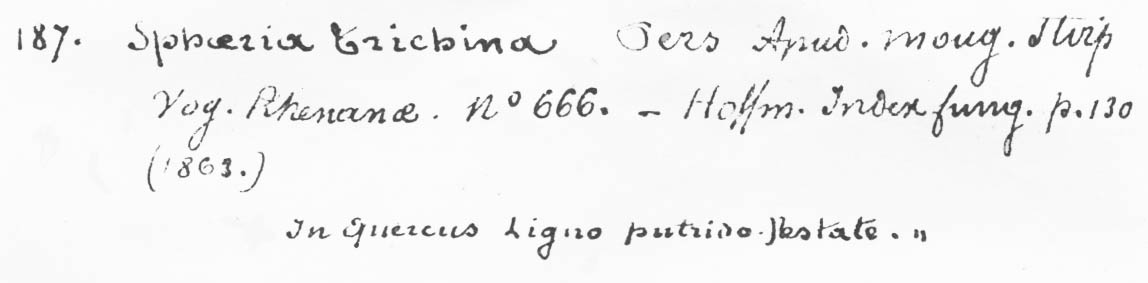 187. Sphæria trichina Pers Apud. moug. Stirp
Vog. Rhenanæ. No 666. - Hoffm. Index fung. p. 130
(1863.)
In Quercus Ligno putrido. Æstate. "